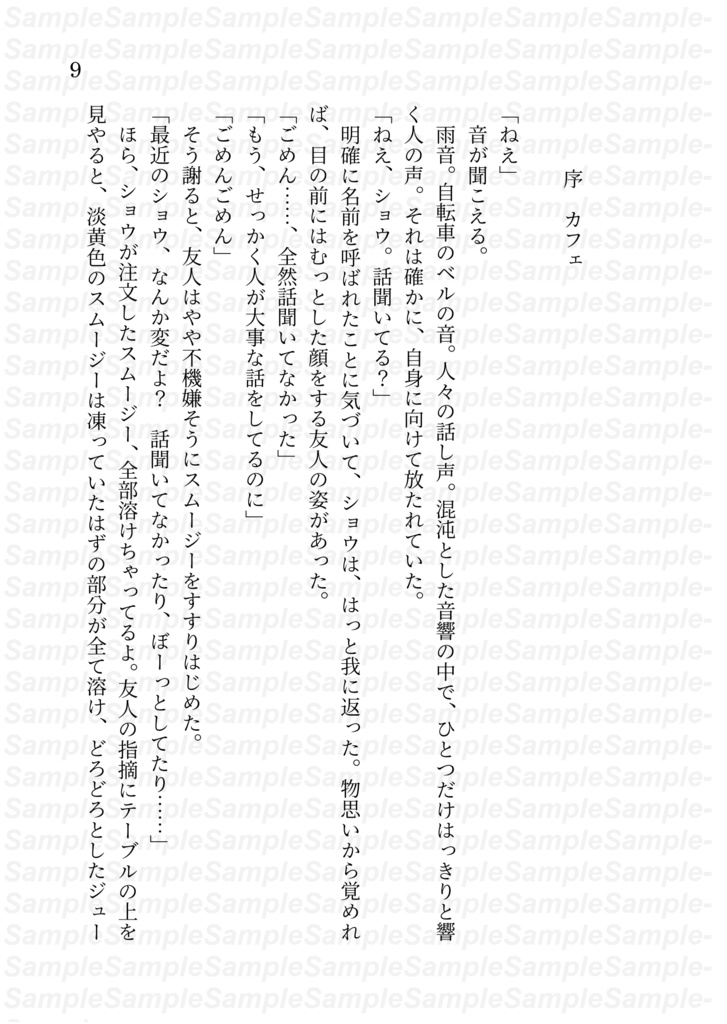 序　カフェ
「ねえ」
　音が聞こえる。
　雨音。自転車のベルの音。人々の話し声。混沌とした音響の中で、ひとつだけはっきりと響
く人の声。それは確かに、自身に向けて放たれていた。
「ねえ、ショウ。話聞いてる？」
　明確に名前を呼ばれたことに気づいて、ショウは、はっと我に返った。物思いから覚めれ
ば、目の前にはむっとした顔をする友人の姿があった。
「ごめん……、全然話聞いてなかった」
「もう、せっかく人が大事な話をしてるのに」
「ごめんごめん」
　そう謝ると、友人はやや不機嫌そうにスムージーをすすりはじめた。
「最近のショウ、なんか変だよ？　話聞いてなかったり、ぼーっとしてたり……」
　ほら、ショウが注文したスムージー、全部溶けちゃってるよ。友人の指摘にテーブルの上を
見やると、淡黄色のスムージーは凍っていたはずの部分が全て溶け、どろどろとしたジュー
9
SampleSampleSampleSampleSampleSampleSampleSample-